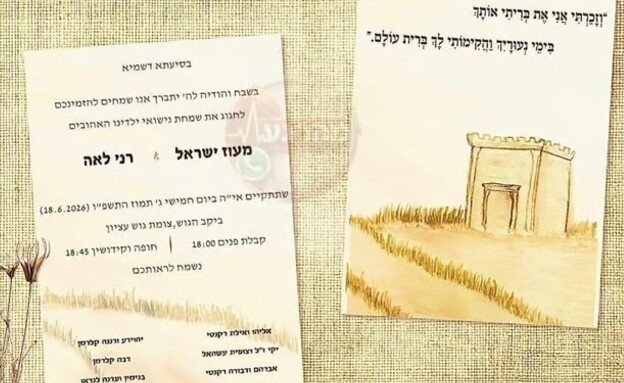 "וְזָכַרְתִּי אֲנִי אֶת בְּרִיתִי אוֹתָךְ
בִּימֵי נְעוּרָיִךְ וַהֲקִימוֹתִי לָךְ בְּרִית עוֹלָם."
בסיעתא דשמיא
בשבח והודיה לה' יתברך אנו שמחים להזמינכם
לחגוג את שמחת נישואי ילדינו האהובים
מעוז ישראל & רני לאה
שתתקיים אי"ה ביום חמישי ג' תמוז התשפ"ו (18.6.2026)
ביקב הגוש, צומת גוש עציון
קבלת פנים 18:00 | חופה וקידושין 18:45
נשמח לראותכם
אליהו ואילת דקנטי
יהוידע ורננה קלרמן
יקי ז"ל וצופית עשהאל
רבה קלרמן
אברהם ודבורה דקנטי
בנימין וערנה לנדאו